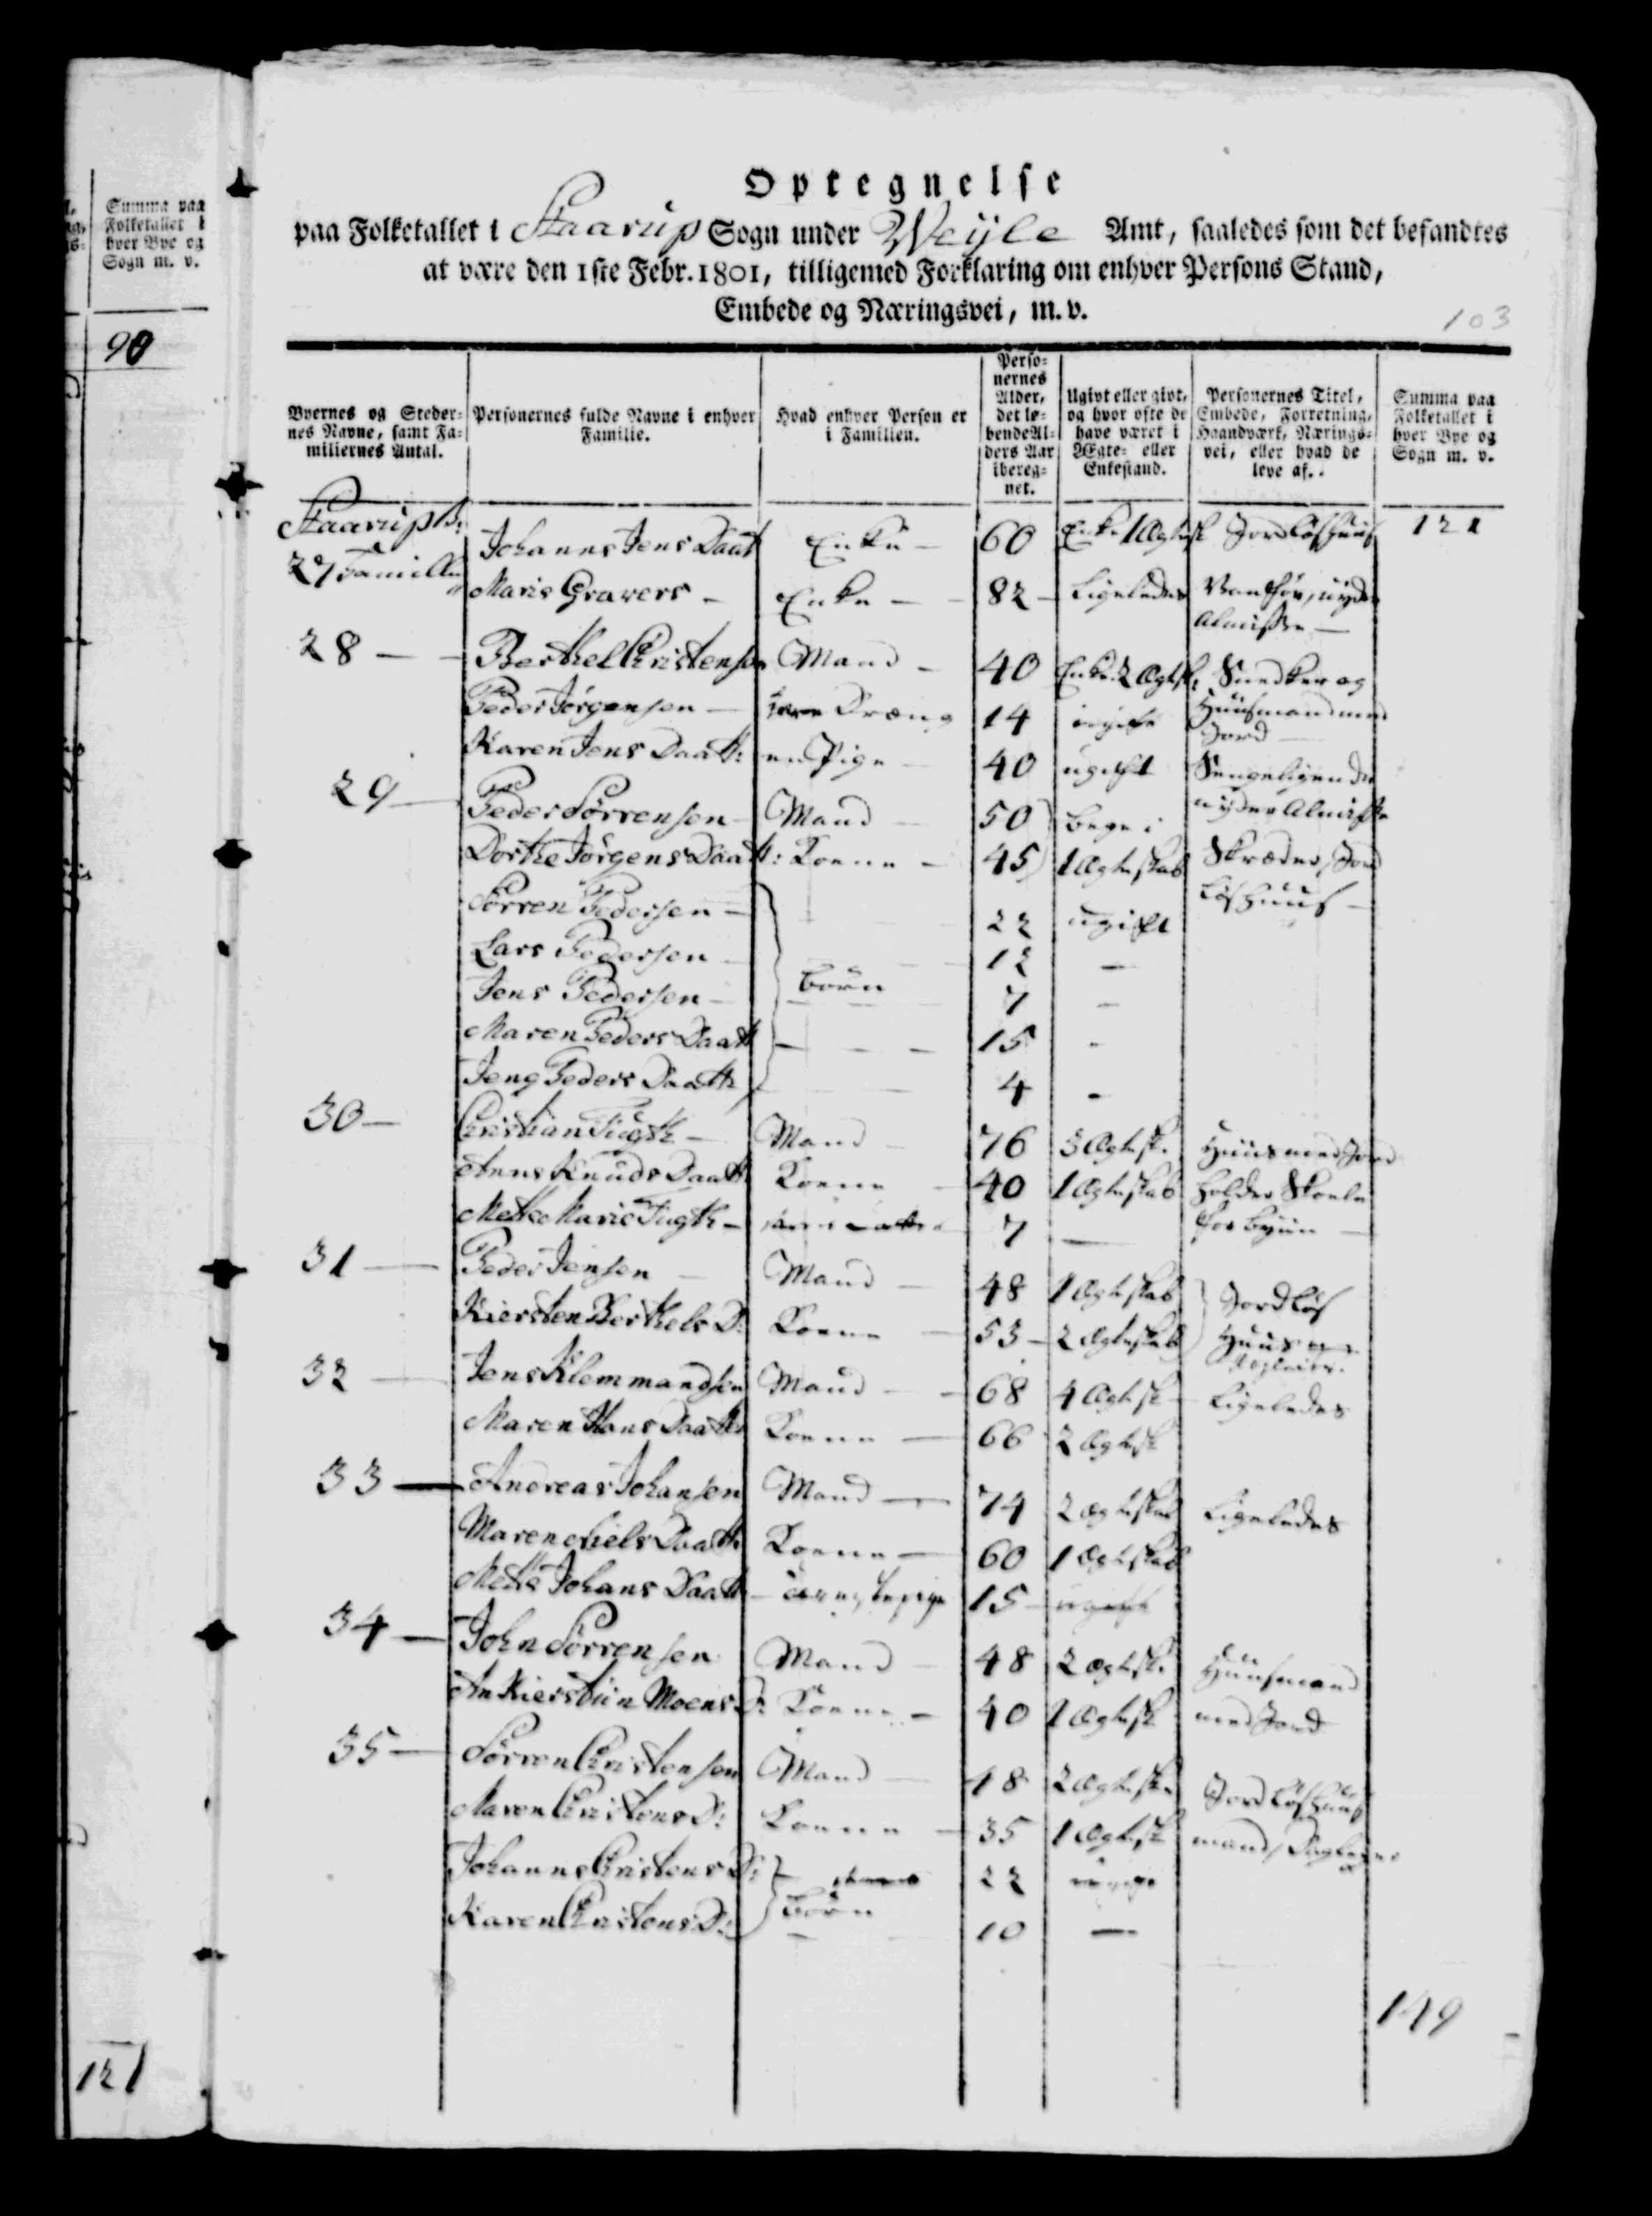 Summa paa
Folketallet i
hver Bye og
Sogn m. v.
90
121
Optegnelse
paa Folketallet i Staarup Sogn under Weÿle Amt, saaledes som det befandtes
at være den 1ste Febr. 1801, tilligemed Forklaring om enhver Persons Stand,
Embede og Næringsvei, m. v.
103
Byernes og Steder-
nes Navne, samt Fa-
miliernes Antal.
Personernes fulde Navne i enhver
Familie.
Hvad enhver Person er
i Familien.
Perso-
nernes
Alder,
det lø-
bende Al-
ders Aar
ibereg-
net.
Ugivt eller givt,
og hvor ofte de
have været i
Ægte- eller
Enkestand.
Personernes Titel,
Embede, Forretning,
Haandværk, Nærings-
vei, eller hvad de
leve af.
Summa paa
Folketallet i
hver Bye og
Sogn m. v.
Staarup B:
27 Familie Johanne Jens Daat Enke 60 Enke 1 Ægtesk Jordløs Huus 121
Maris Gravers Enke 82 Ligeledes Vanfør, nyder
Almisse
28 Berthel Christensen Mand 40 Enke 2 Ægtsk: Smedker og
Peder Jörgensen Dreng 14 ugift Huusmand med
Jord
Karen Jens Daatt: en Pige 40 ugift Sengeligende
nyder Almisse
29 Peder Sörrensen Mand 50 bege i
Dorthe Jörgens Daatt: Konne 45 1 Ægteskab Skræder, Jord
løs Huus
Sörren Pedersen 22 ugift
Lars Pedersen 12
Jens Pedersen börn 7
Maren Peders Daatt 15
Jeng Peders Daatt 4
30 Christian Fugth Mand 76 3 Ægtesk. Huus med Jord
Anne Knuds Daatt Konne 40 1 Ægteskab holder Skoele
Mette Marie Fugth 7 for byen
31 Peder Jensen Mand 48 1 Ægteskab Jordløs
Kiersten Berthels D: Konne 53 2 Ægteskab Huus
32 Jens Klemmandsen Mand 68 4 Ægtesk Ligeledes
Maren Hans Daatt Konne 66 2 Ægtesk
33 Andreas Johansen Mand 74 2 Ægteskab Ligeledes
Maren Niels Daatt Konne 60 1 Ægteskab
Mette Johans Daatt 15 ugift
34 John Sörrensen Mand 48 2 Ægtesk. Huusmand
An Kierstin Moens D: Konne 40 1 Ægtesk med Jord
35 Sörren Christensen Mand 48 2 Ægtesk. Jordløs Huus
Maren Christens D: Konne 35 1 Ægtesk mand, Dagleyer
Johanne Christens D: 22
Karen Christens D: börn 10
149